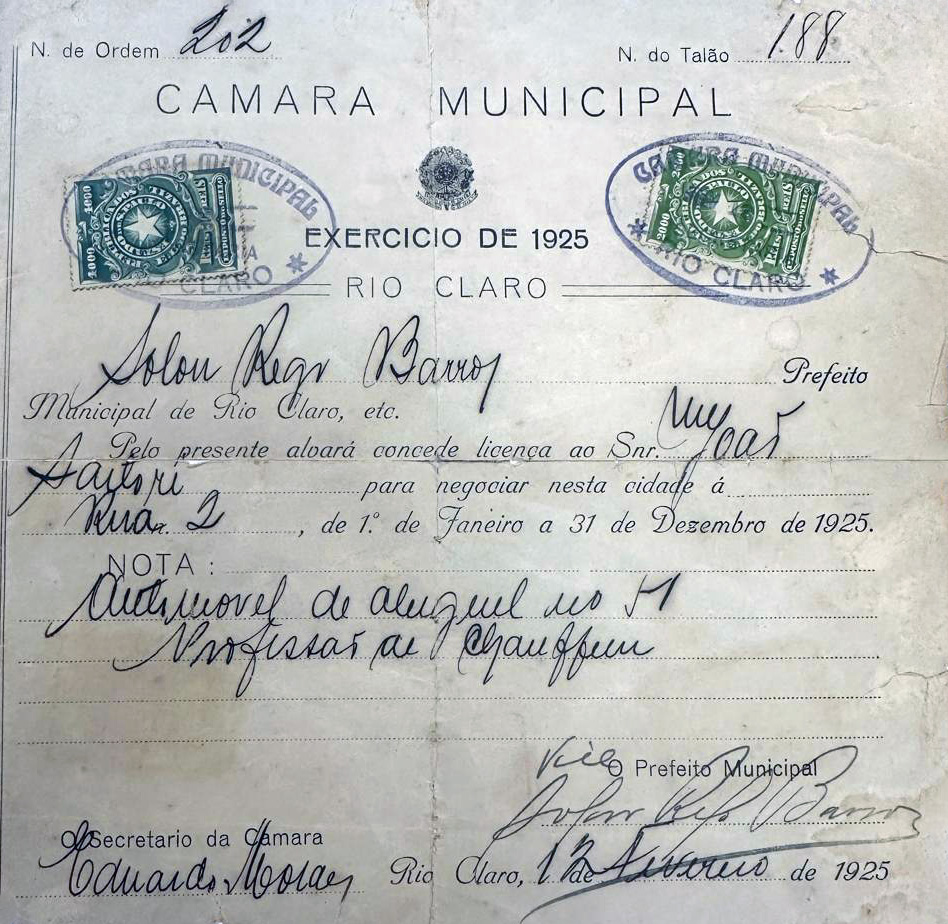 N. de Ordem 202
N. do Talão 188
CAMARA MUNICIPAL
CAMARA MUNICIPAL
CLARO
CAMARA MUNICIPAL
RIO CLARO
EXERCICIO DE 1925
RIO CLARO
Solon Rego Barros Prefeito
Municipal de Rio Claro, etc.
Pelo presente alvará concede licença ao Snr. João
Sartori para negociar nesta cidade á
Rua 2, de 1.º de Janeiro a 31 de Dezembro de 1925.
NOTA:
Automovel de aluguel no 51
Profissão de Chauffeur
Vice
O Prefeito Municipal
Solon Rego Barros
O Secretario da Camara
Eduardo Moraes
Rio Claro, 12 de Fevereiro de 1925